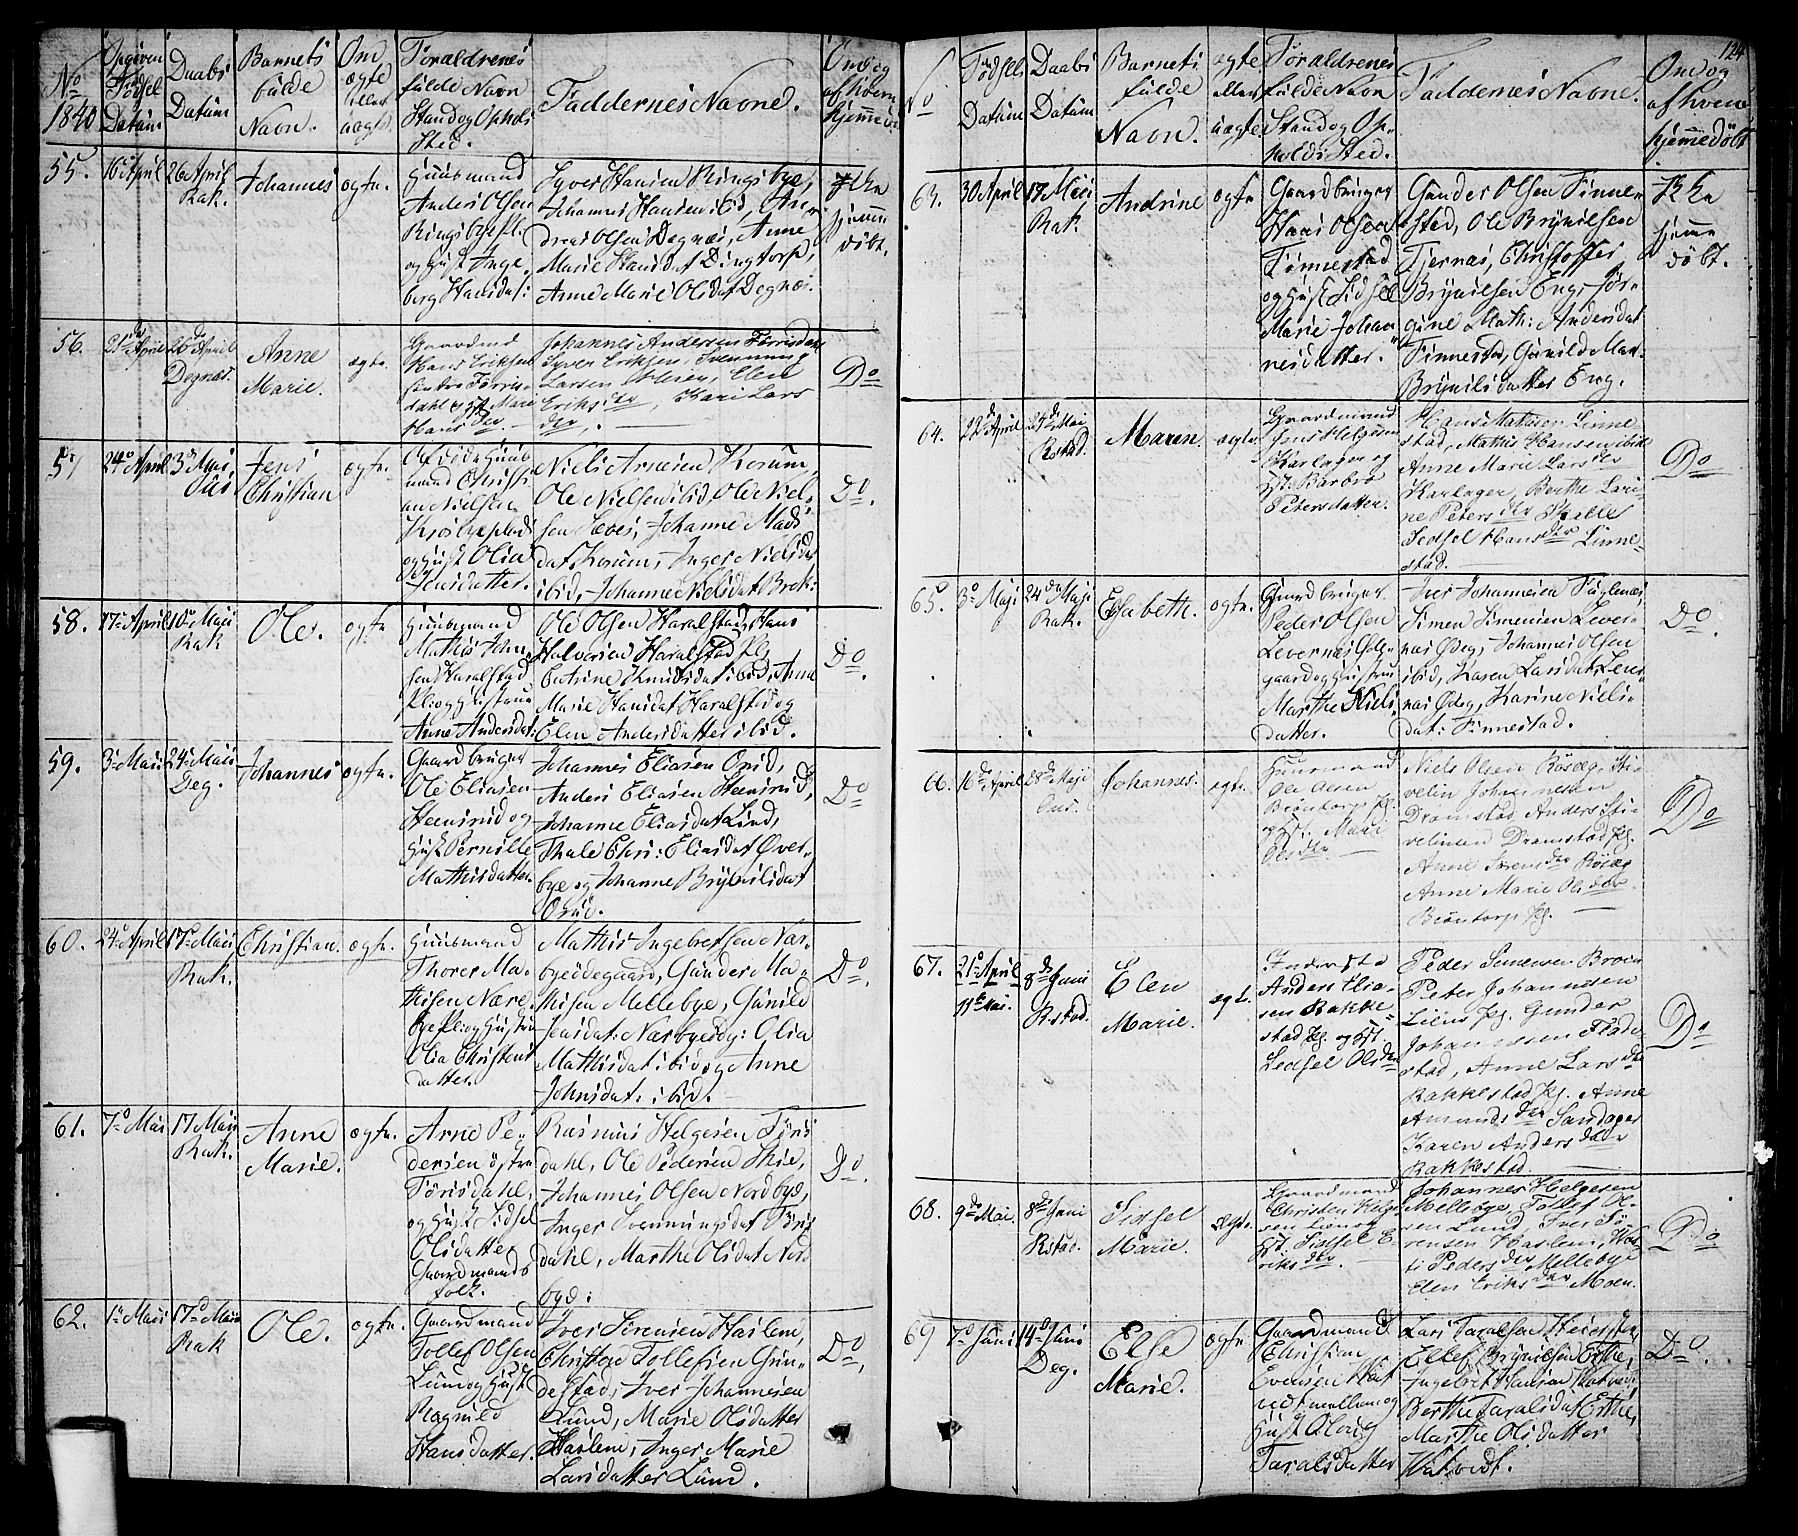 No
1840
Opgiven
Fødsel
Datum
Daabs
Datum
Barnets
fulde
Navn.
Om
ægte
eller
uægte.
Forældrenes
fulde Navn
Stand og Opholds
Sted.
Faddernes Navne.
Om og
af hvem
hjemme
55.
16de April
26 April
Rak.
Johannes
ægte.
Huusmand
Anders Olsen
Ringsbye Pl.
og Hust. Inge
berg Hansdat:
Syver Hansen Ringsbye,
Johannes Hansen ibid, An-
dreas Olsen Degnæs, Anne
Marie Hansdat Dingtorp,
Anne Marie Olsdat Degnæs.
Ikke
hjemme
døbt.
56.
21de April
26de April
Degnæs.
Anne
Marie.
ægte.
Gaardmd
Hans Eriksen
dahl og H. Marie
Hansdtr.
Johannes Andersen Førrisdahl
Syver Eriksen, Svenning
Larsen Eriksdtr, Kari Lars
dtr.
Do
57
24de April
3de Maii
Jens
Christian
ægte.
Huus
mand Christi
an Nielsen
Krosbyeplads
og Hust Olia
Jensdatter.
Niels Arnesen Korum,
Ole Nielsen ibid, Ole Niel-
sen Johanne Mads
dat. Korum, Inger Nielsdat
ibid, Johanne Nielsdat Brek:
Do.
58.
17de April
10de Maii
Rak
Ole.
ægte
Huusmand
Mathis John
sen Haralstad
Pl. og Hustrue
Anne Andersdat:
Ole Olsen Haralstad, Hans
Halvorsen Haralstad Pl,
Cathrine Knudsdat ibid, Anne
Marie Hansdat Haralstad og
Elen Andersdatter ibid.
Do.
59.
3de Maii
24de Maii
Deg.
Johannes
ægte.
Gaardbruger
Ole Eliasen
Heensrud og
Hust Pernille
Mathisdatter.
Johannes Eliasen Osud,
Anders Eliasen Heensrud,
Johanne Eliasdat Lund,
Thale Chri: Eliasdat Øver-
bye og Johanne Brynilsdat
Osud.
Do
60.
24de April
17de Maii
Rak.
Christian.
ægte.
Huusmand
Thorer Ma-
thisen Nære
bye Pl. og Hustru
Olia Christens
datter.
Mathis Ingebretsen Nær-
byeødegaard, Gunder Ma-
thisen Mellebye, Gunild
Jensdat: Nærbyeødg: Olia
Mathisdat ibid og Anne
Johnsdat: ibid.
Do.
61.
7de Mai
17 Maii
Rak.
Anne
Marie.
ægte.
Arne Pe-
dersen østre
Førisdahl,
og Hust Sidsel
Olsdatter
Gaardmands
folk.
Rasmus Helgesen Føris
dahl, Ole Pedersen Skie,
Johannes Olsen Nordbye,
Inger Svenningsdat Føris
dahl, Marthe Olsdat Nord
bye:
Do.
62.
1de Maii
17de Maii
Rak
Ole.
ægte.
Gaardmand
Tollef Olsen
Lund og Hust
Ragnild
Hansdatter.
Iver Sørensen Haslem,
Christen Tollefsen Gun-
destad, Iver Johannesen
Lund, Marie Olsdatter
Haslem, Inger Marie
Larsdatter Lund.
Do.
124
No
Fødsels
Datum
Daabs
Datum
Barnets
fulde
Navn.
ægte
eller
uægte
Forældrenes
fulde Navn
Stand og Op-
holds Sted.
Faddernes Navne.
Om og
af hvem
hjemmedøbt
63.
30 April
17 Maii
Rak.
Andrine
ægte
Gaardbruger
Hans Olsen
Finnestad
og Hust Sidsel
Marie Johan
nesdatter.
Gunder Olsen Finne-
stad, Ole Brynilsen
Tjernæs, Christoffer
Brynilsen Eng, Jør-
gine Math: Andersdat
Finnestad, Gunilde Mar.
Brynilsdatter Eng.
Ikke
hjemme
døbt.
64.
22de April
24de Maj
Rstad.
Maren
ægte.
Gaardmand
Jens Helgesen
Karlager og
Hst. Barbro
Petersdatter.
Hans Mathisen Linne
stad, Mathis Hansen ibid
Anne Marie Larsdtr
Karlager, Berthe Lari-
ne Petersdtr
Sidsel Hansdtr Linne-
stad.
Do
65.
3de Maji
24de Maji
Rak.
Elisabeth.
ægte.
Gaardbruger
Peder Olsen
Levernæs Øde-
gaard og Hustru
Marthe Niels
datter.
Iver Johannesen Fuglenæs,
Simen Simensen Lever-
næs Ødeg, Johannes Olsen
ibid, Karen Larsdat Lever-
næs Ødeg, Karine Niels-
dat: Finnestad.
Do.
66.
16de April
28de Maji
Ons.
Johannes.
ægte.
Huusmand
Ole Olsen
Brøntorp Pl.
og Hst. Mari
Olsdtr.
Niels Olsen Røsæg, Hi-
velin Johannesen
Dramstad Anders Hi-
velinsen Dramstad Pl.
Anne Svensdtr Røsæg
Anne Marie Olsdtr
Brøntorp Pl.
Do
67.
21de April
11te Mai.
8de Juni
Rstad.
Elen
Marie.
ægt.
Inderste
Anders Elia-
sen Rakke-
stad Pl. og Hst.
Sedsel Olsdtr
Peder Simensen Broen
Peter Johannesen
Liens Pl. Gunder
Johannesen Flade
stad, Anne Larsdtr
Rakkestad Pl. Anne
Amundsdtr Sandager
Karen Andersdatr
Rakkestad.
Do
68.
9de Mai.
8de Juni
Rstad.
Sidsel
Marie.
ægte.
Gaardmand
Christen Helge
sen Lund og
Hst. Sidsel E-
riksdtr.
Johannes Helgesen
Mellebye, Tollef Ol-
sen Lund, Iver Sø-
rensen Haslem, Kas-
ti Pedersdtr Mellebye
Elen Eriksdtr Moen.
Do
69
7de Juni
14de Juni
Deg.
Else
Marie.
ægte
Gaardmand
Christian
Evensen Hat
vedt mellem og
Hust Oloug
Taralsdatter
Lars Taralsen
Ellef Brynilsen Erthe,
Ingebret Hansen Hatvedt
Berthe Taralsdat Erthe,
Marthe Olsdatter
Hatvedt.
Do.